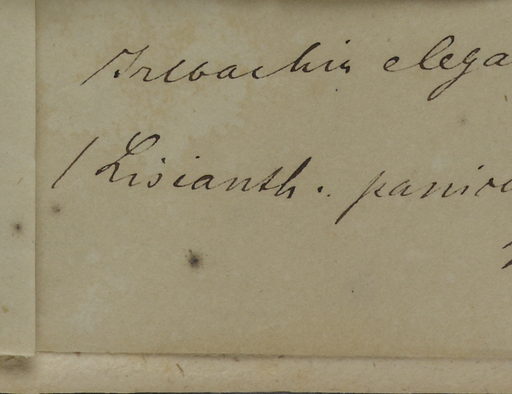 Irlbachia elega
(Lisianth. panicu